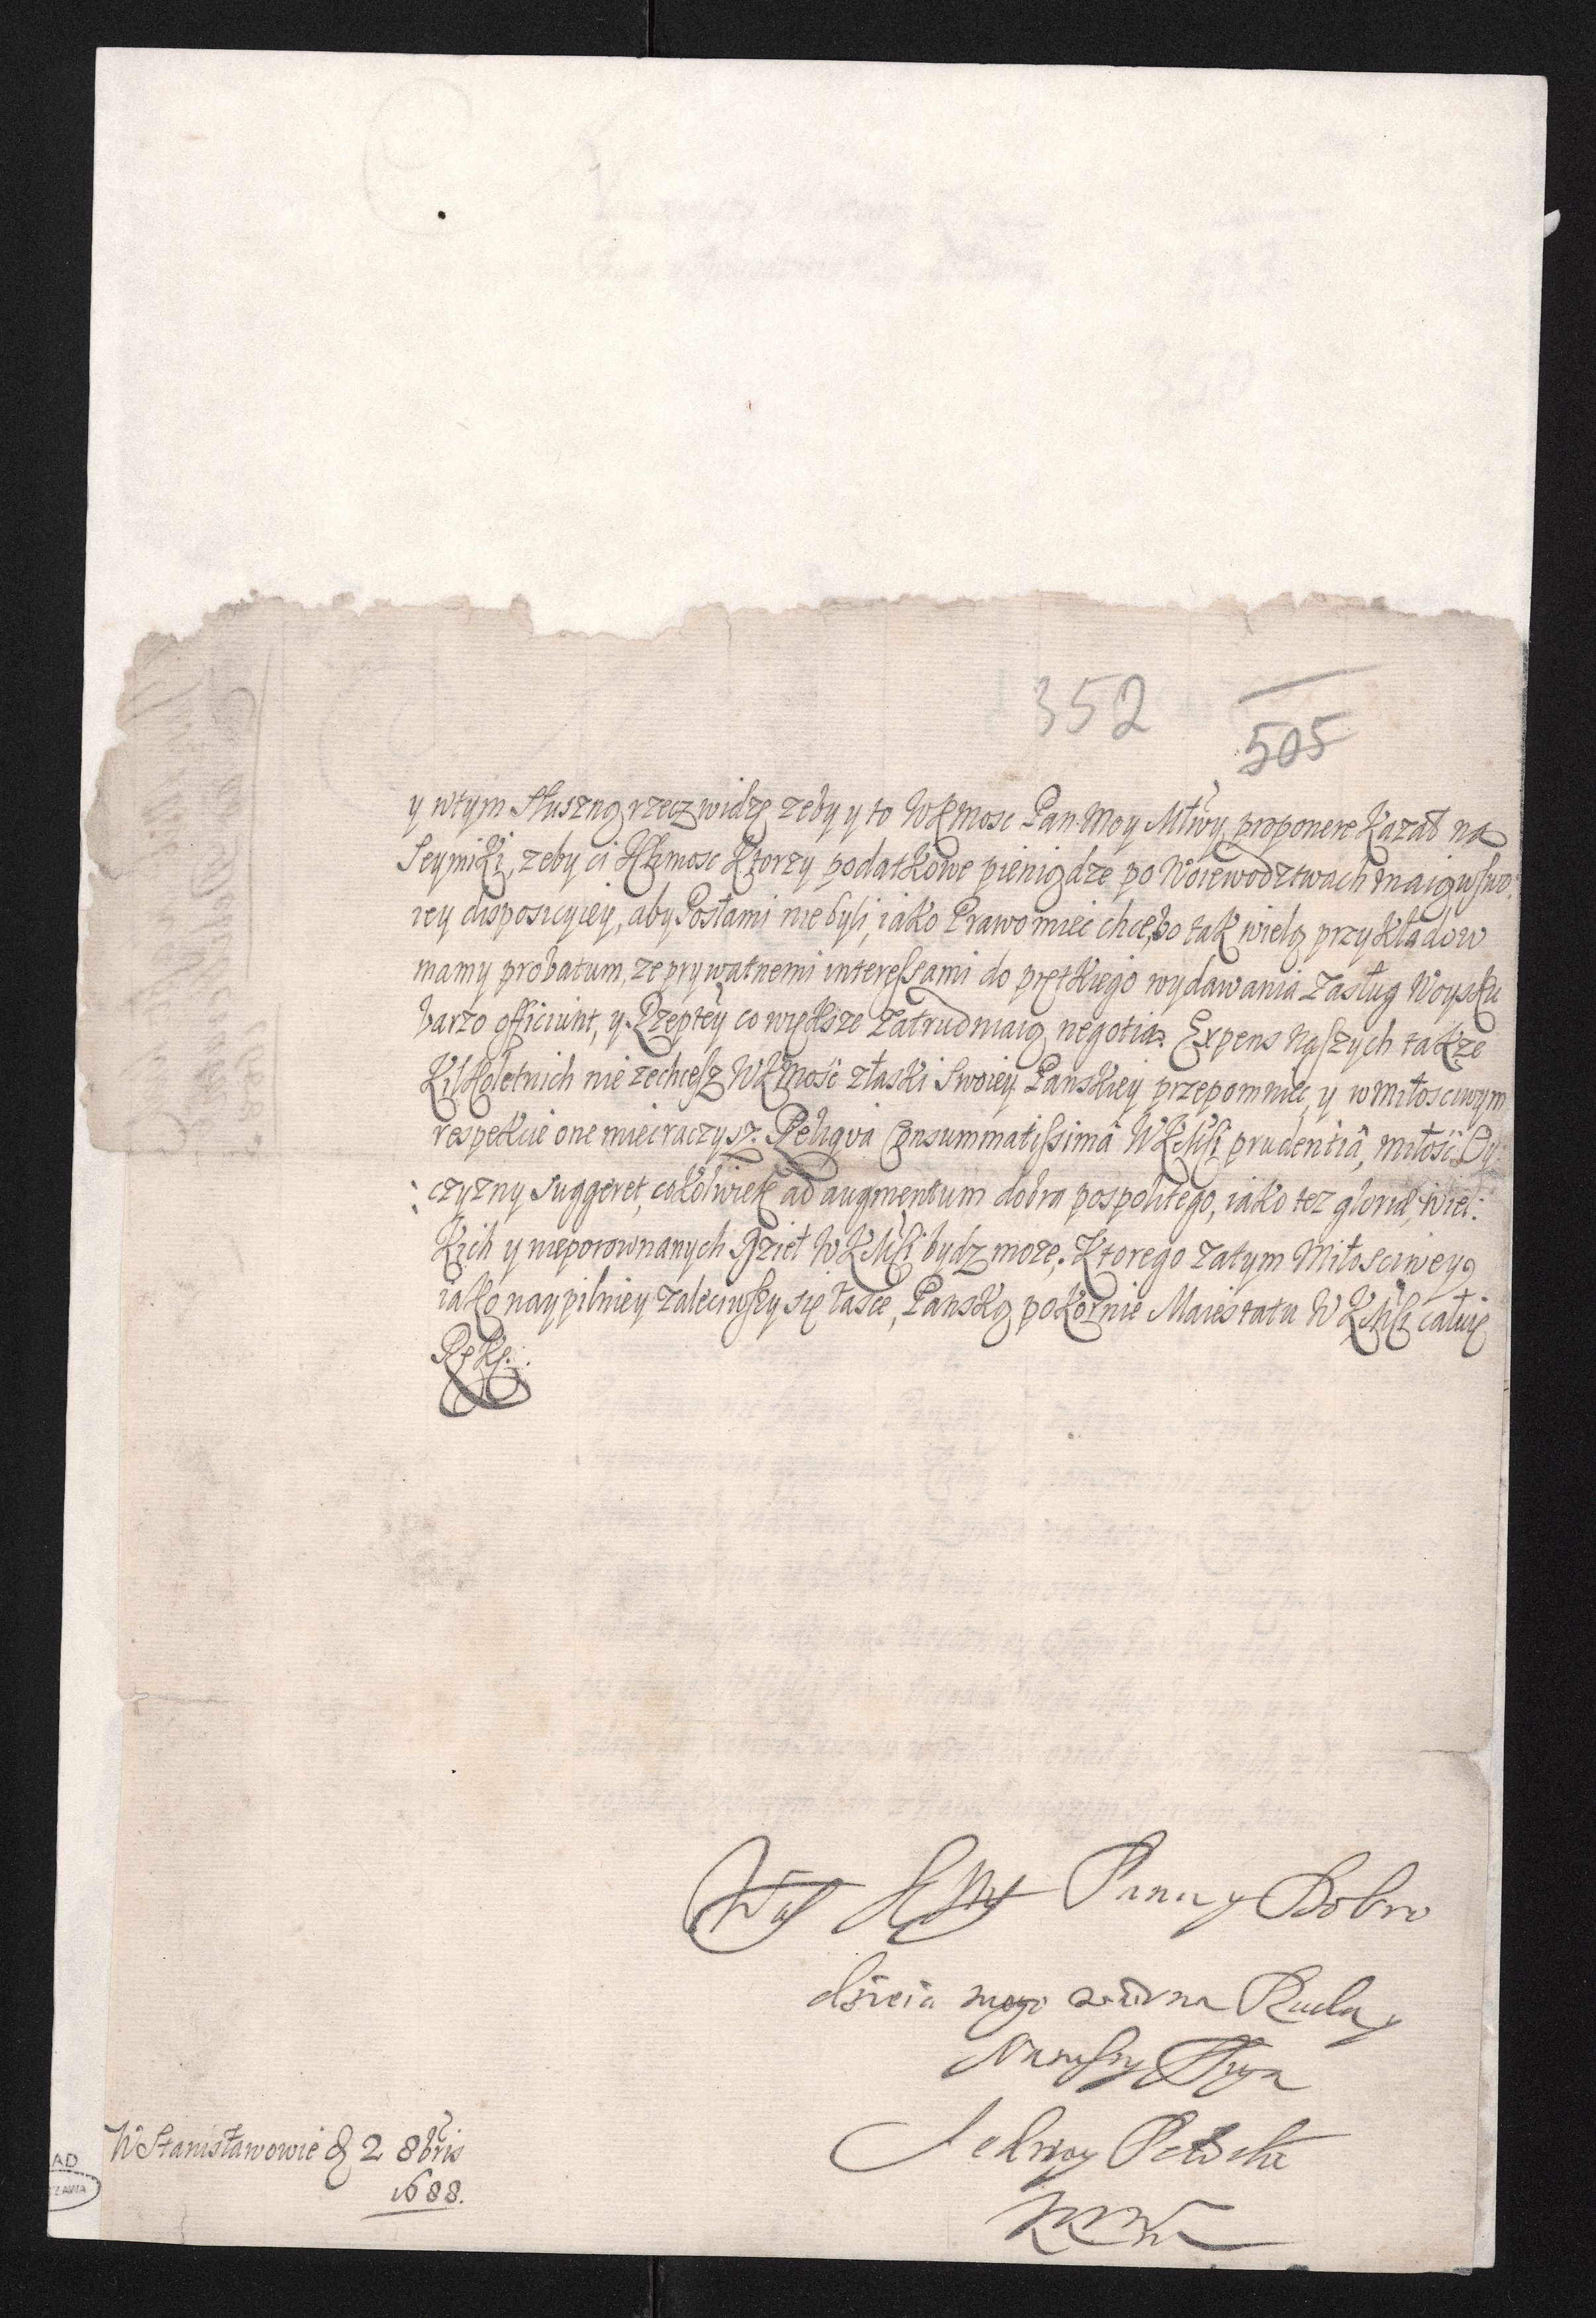 352
505
y wtym słuszną rzecz widzę zeby y to WKMosc Pan Moy Młwy proponere kazał na
Seymiki, zeby ci IchMosc ktorzy podatkowe pieniądze po Woiewodztwach maią w swo
iey disposicyiey, aby Posłami nie byli, iako Prawo miec chce, bo tak wielą przykładow
mamy probatum, ze prywatnemi interessami do prętkiego wydawania zasług Woysku
barzo officiunt, y Rzeptey co większe zatrudniaią negotia. Expens naszych takze
kilkoletnich nie zechcesz WKMość z łaski Swoiey Panskiey przepomniec, y w miłosciwym
respekcie one miec raczysz. Reliqva Consummatissimâ WKMsci prudentiâ, miłość Oy:
: czyzny suggeret, cokolwiek ad augmentum dobra pospolitego, iako tez gloriæ, wiel:
kich y nieporownanych Dzieł WKMsci bydz moze. Ktorego zatym Miłosciwey
iako naypilniey zaleciwszy się łasce, Panską pokornie Maiestatu WKMsci całuię
Rękę.
W K Mści Pana y Dobro
dzieia mego wierna Rada y
Nanizszy Sługa
Jędrzey Potocki
W Stanisławowie d 2 8bris
1688.
AD